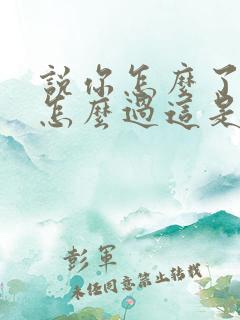 說你怎麼了
怎麼過這是
彭軍
未任同意禁止转载